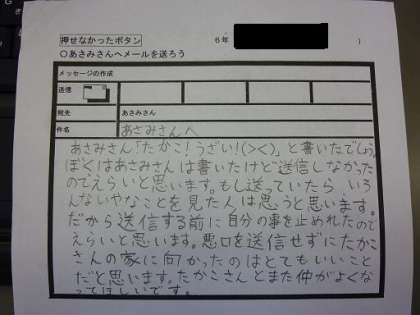 押せなかったボタン
6年
)
○あさみさんへメールを送ろう
メッセージの作成
送信
宛先
あさみさん
件名
あさみさんへ
あさみさん「たかこ!うざい!(><)」と書いたでしょう。
ぼくはあさみさんは書いたけど送信しなかった
のでえらいと思います。もし送っていたら、いろ
んないやなことを見た人は思うと思います。
だから送信する前に自分の事を止めれたので
えらいと思います。悪口を送信せずにたかこ
さんの家に向かったのはとてもいいこと
だと思います。たかこさんとまた仲がよくな
ってほしいです。